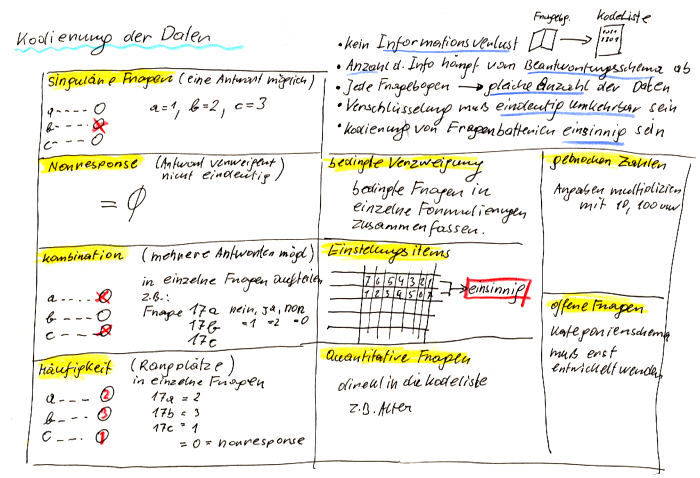 Kodierung der Daten
Fragebg. → Kodeliste
• kein Informationsverlust
• Anzahl d. Info hängt vom Beantwortungsschema ab
• Jede Fragebogen → gleiche Anzahl der Daten
• Verschlüsselung muß eindeutig umkehrbar sein
• Kodierung von Fragenbatterien einsinnig sein
Singuläre Fragen (eine Antwort möglich)
a---- O a=1, b=2, c=3
b---- O
c---- O
Nonresponse (Antwort verweigert
nicht eindeutig)
= Ø
Kombination (mehrere Antworten mögl.)
in einzelne Fragen aufteilen
a.... O z.B.:
b---- O Frage 17a nein, ja, non
c---- O 17b =1 =2 =0
17c
Häufigkeit (Rangplätze)
in einzelne Fragen
a---- 2 17a = 2
b---- 3 17b = 3
c---- 1 17c = 1
= 0 = nonresponse
bedingte Verzweigung
bedingte Fragen in
einzelne Formulierungen
zusammenfassen.
Einstellungsitems
7 6 5 4 3 2 1
1 2 3 4 5 6 7 → einsinnig
Quantitative Fragen
direkt in die Kodeliste
z.B. Alter
gebrochen Zahlen
Angaben multiplizieren
mit 10, 100 usw
offene Fragen
Kategorienschema
muß erst
entwickelt werden